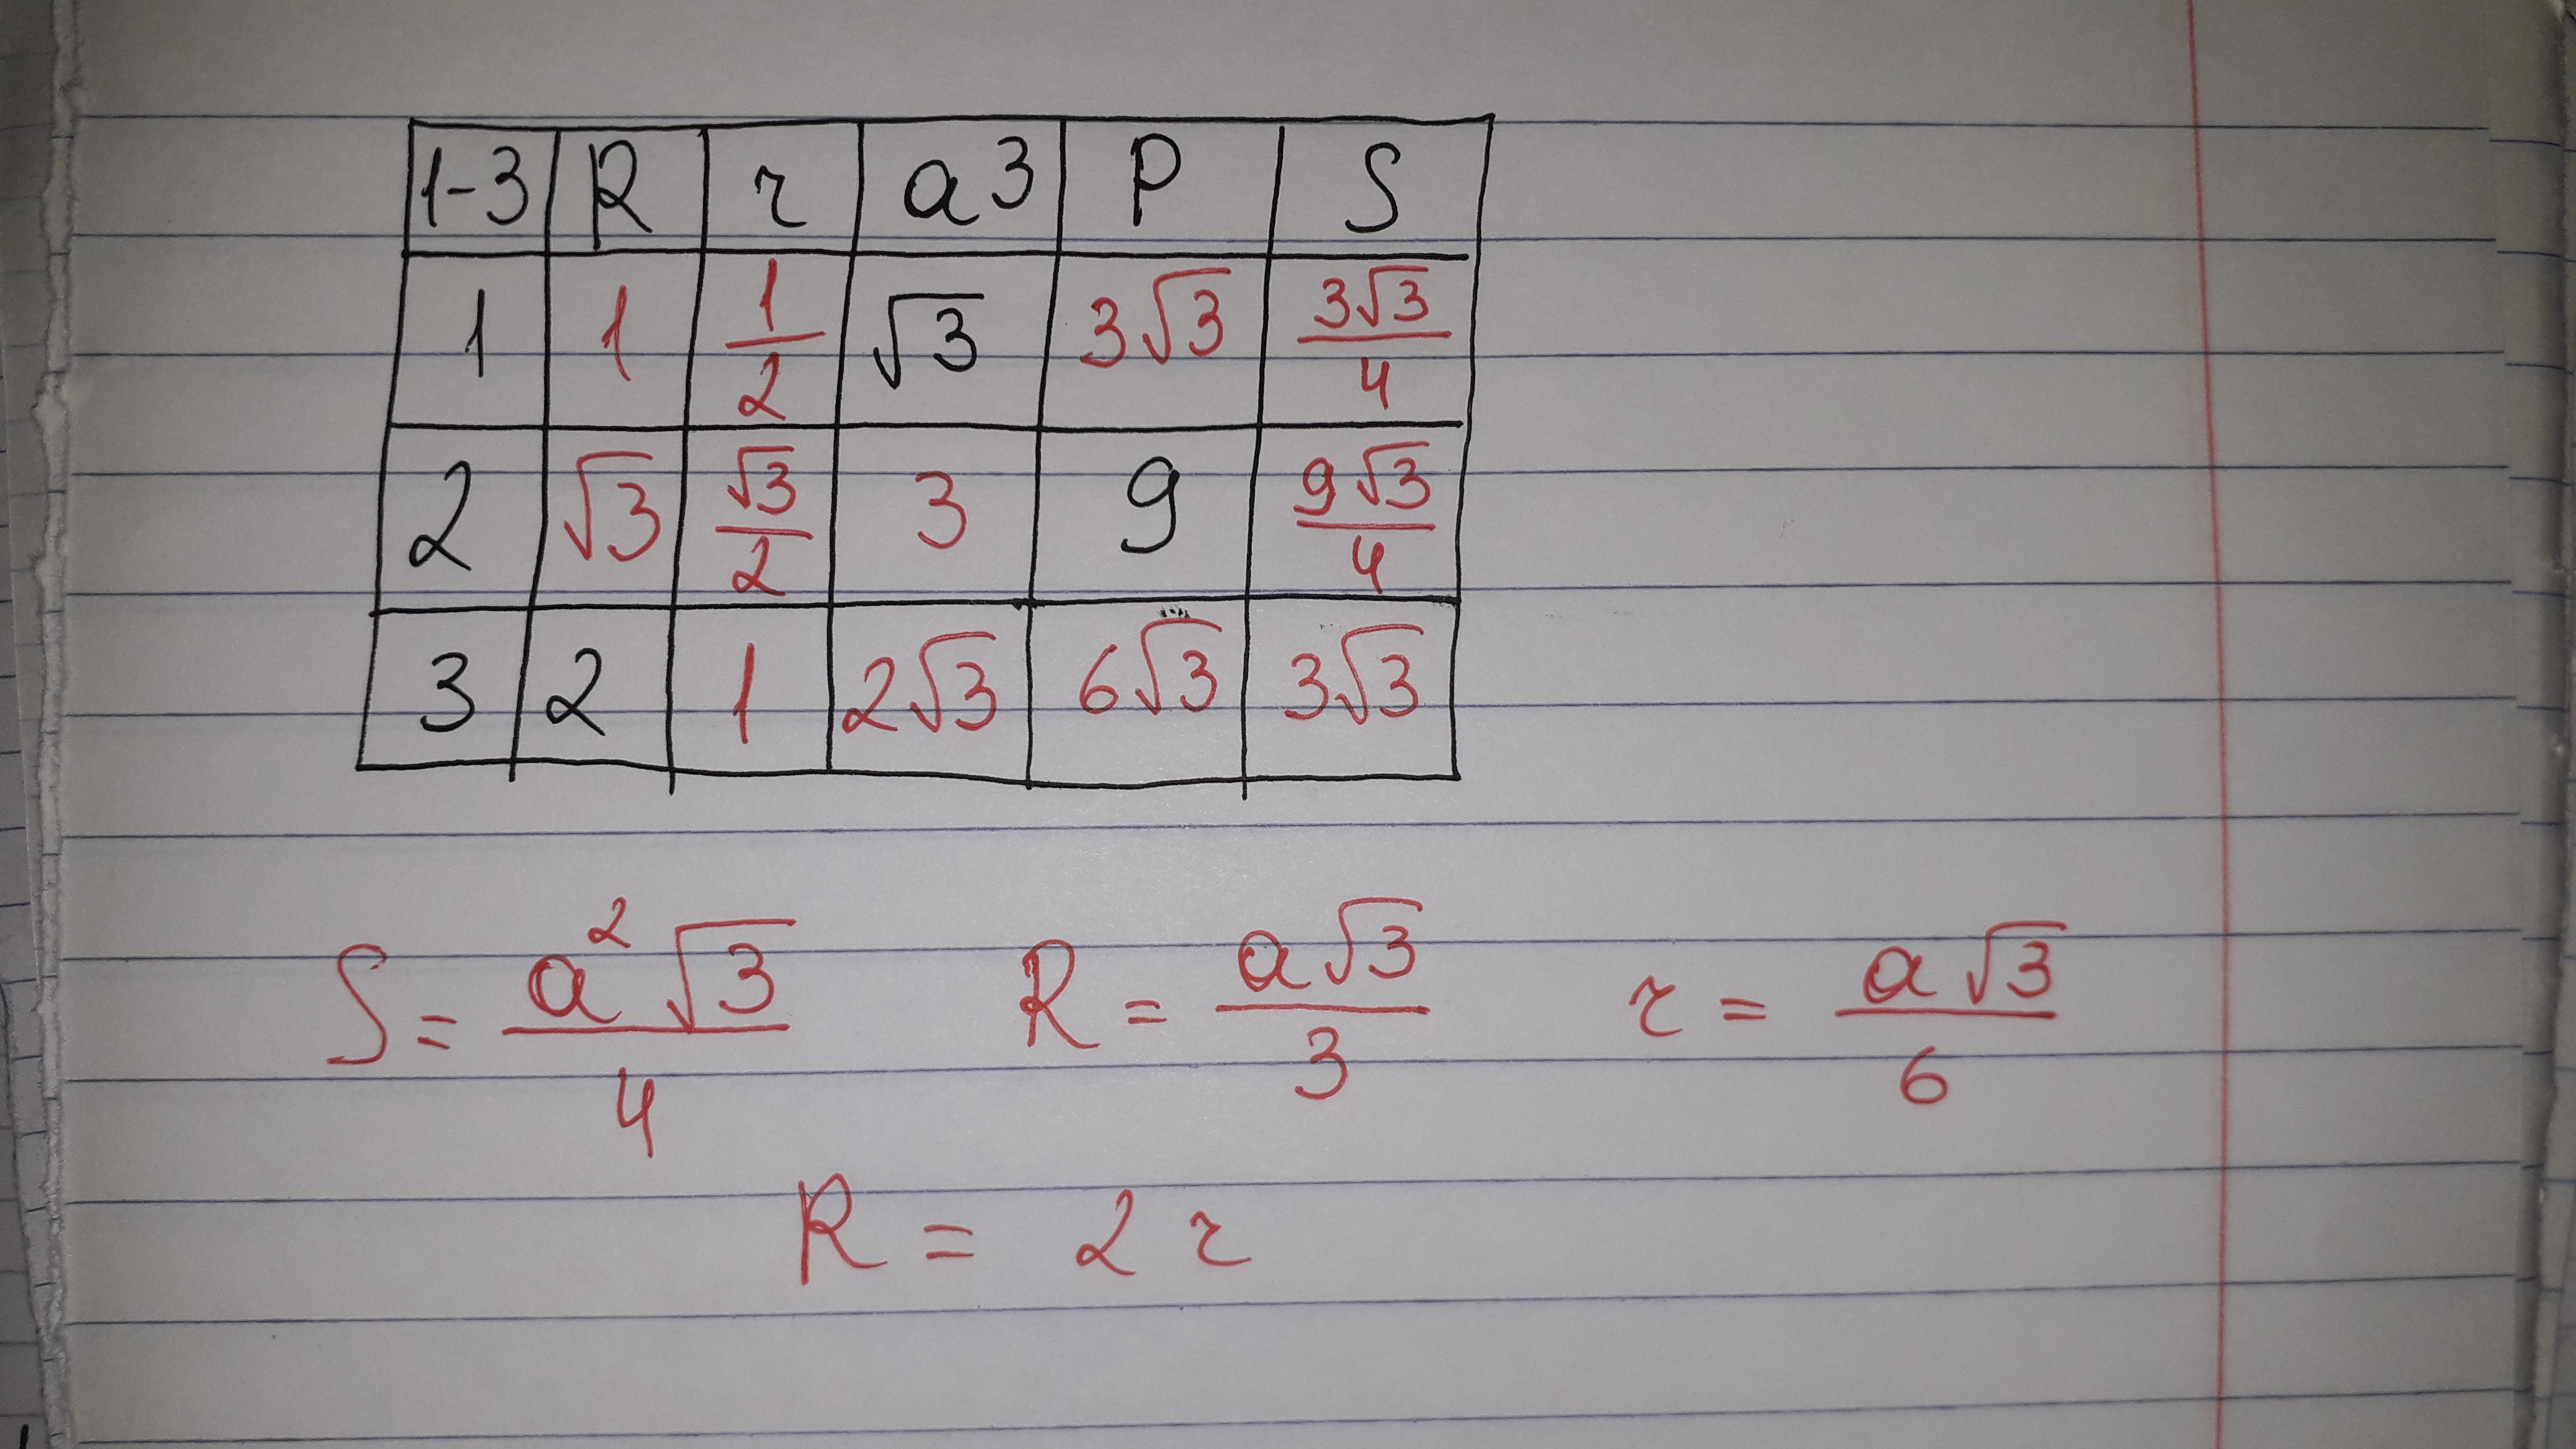 1-3 R r a3 P S
1 1 1/2 √3 3√3 3√3/4
2 √3 √3/2 3 9 9√3/4
3 2 1 2√3 6√3 3√3
S = a²√3/4 R = a√3/3 r = a√3/6
R = 2r